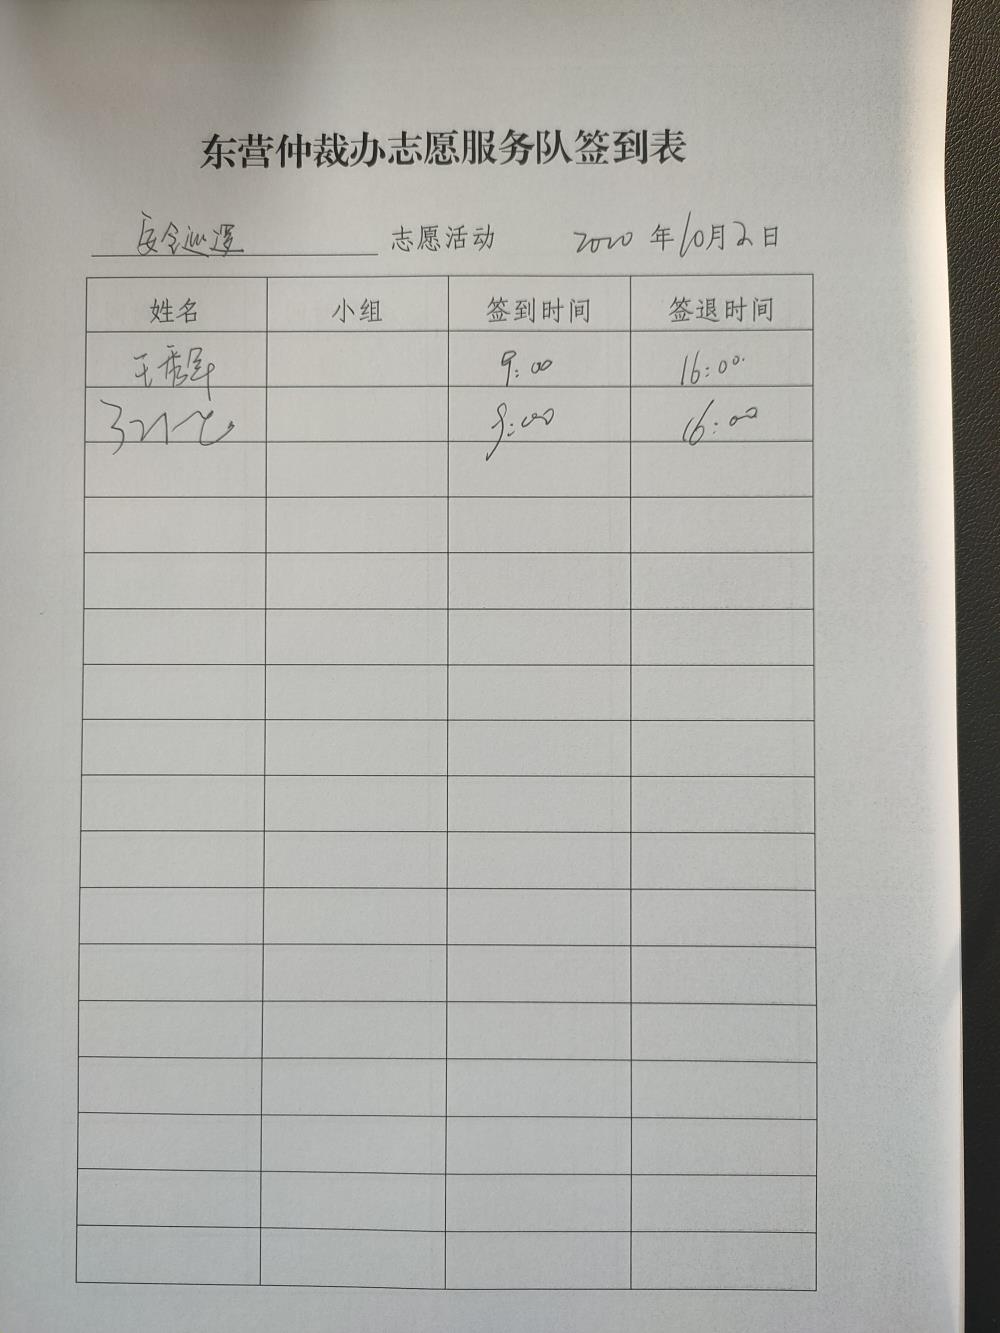 东营仲裁办志愿服务队签到表
安全巡逻 志愿活动 2020 年 10 月 2 日
姓名 小组 签到时间 签退时间
王秀军 9:00 16:00
9:00 16:00